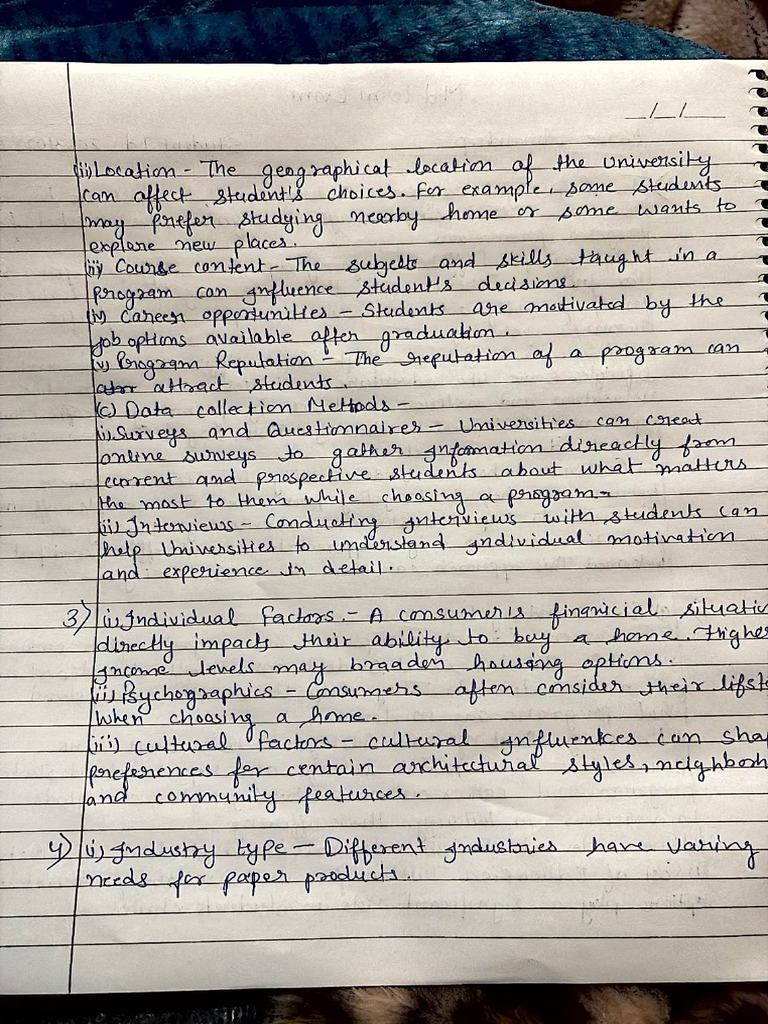 _/_/_
ii) Location - The geographical location of the University
can affect student's choices. For example, some students
may prefer studying nearby home or some wants to
explore new places.
iii) Course content - The subjects and skills taught in a
program can influence student's decisions.
iv) Career opportunities - Students are motivated by the
job options available after graduation.
v) Program Reputation - The reputation of a program can
attract students.
(c) Data collection Methods -
i) Surveys and Questionnaires - Universities can creat
online surveys to gather information direactly from
current and prospective students about what matters
the most to them while choosing a program.
ii) Interviews - Conducting interviews with students can
help Universities to understand individual motivation
and experience in detail.
3) (i) Individual Factors. - A consumer's finanicial situatio
directly impacts their ability to buy a home. Higher
income levels may broaden housing options.
(ii) Psychographics - Consumers often consider their lifst
when choosing a home.
iii) Cultural Factors - cultural influences can sha
preferences for certain architectural styles, neighborh
and community features.
4) (i) Industry type - Different industries have varing
needs for paper products.